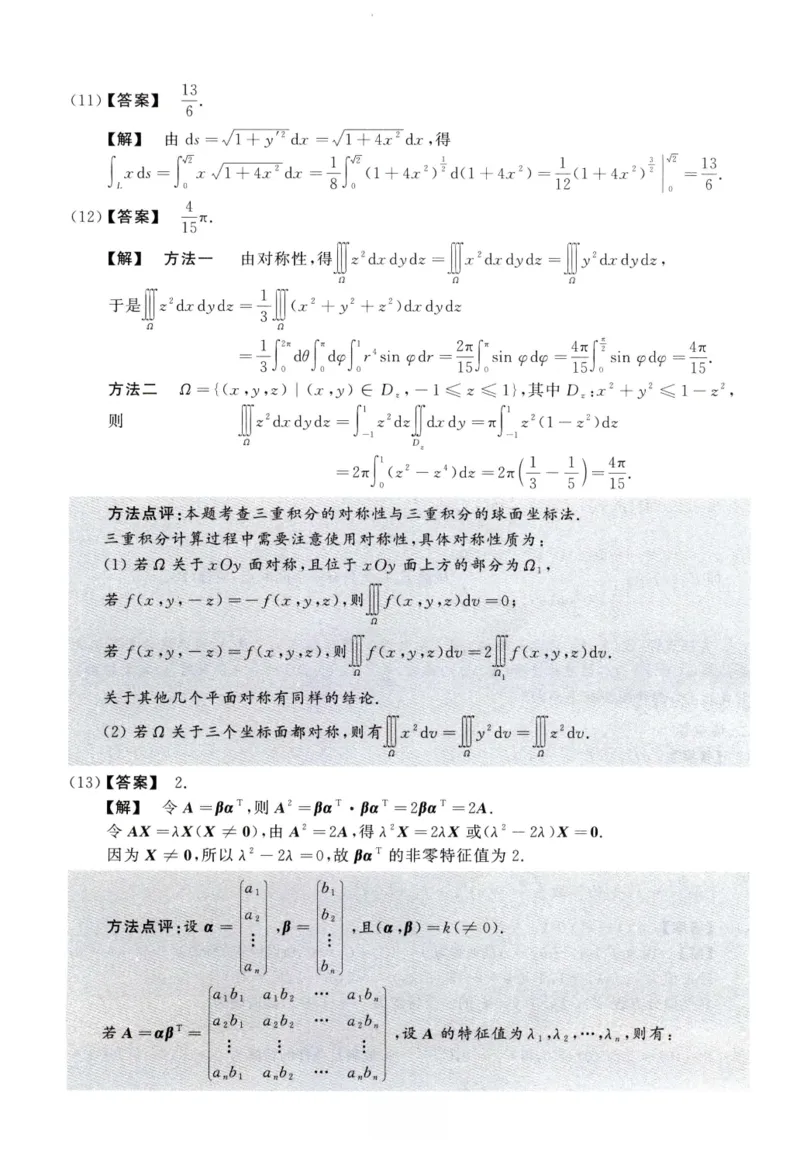 (11)【答案】 $\frac{13}{6}$.
【解】 由 $ds=\sqrt{1+y'^2}dx=\sqrt{1+4x^2}dx$,得
$\int_L xds=\int_0^{\sqrt{2}} x\sqrt{1+4x^2}dx=\frac{1}{8}\int_0^{\sqrt{2}}(1+4x^2)^{\frac{1}{2}}d(1+4x^2)=\frac{1}{12}(1+4x^2)^{\frac{3}{2}}\Big|_0^{\sqrt{2}}=\frac{13}{6}$.
(12)【答案】 $\frac{4}{15}\pi$.
【解】 方法一 由对称性,得$\iiint_\Omega z^2dxdydz=\iiint_\Omega x^2dxdydz=\iiint_\Omega y^2dxdydz$,
于是$\iiint_\Omega z^2dxdydz=\frac{1}{3}\iiint_\Omega(x^2+y^2+z^2)dxdydz$
$=\frac{1}{3}\int_0^{2\pi}d\theta\int_0^{\pi}d\varphi\int_0^1 r^4\sin\varphi dr=\frac{2\pi}{15}\int_0^{\pi}\sin\varphi d\varphi=\frac{4\pi}{15}\int_0^{\frac{\pi}{2}}\sin\varphi d\varphi=\frac{4\pi}{15}$.
方法二 $\Omega=\{(x,y,z)|(x,y)\in D_z,-1\leqslant z\leqslant 1\}$,其中 $D_z:x^2+y^2\leqslant 1-z^2$,
则 $\iiint_\Omega z^2dxdydz=\int_{-1}^1 z^2dz\iint_{D_z}dxdy=\pi\int_{-1}^1 z^2(1-z^2)dz$
$=2\pi\int_0^1(z^2-z^4)dz=2\pi\left(\frac{1}{3}-\frac{1}{5}\right)=\frac{4\pi}{15}$.
方法点评:本题考查三重积分的对称性与三重积分的球面坐标法.
三重积分计算过程中需要注意使用对称性,具体对称性质为:
(1) 若 $\Omega$ 关于 $xOy$ 面对称,且位于 $xOy$ 面上方的部分为 $\Omega_1$,
若 $f(x,y,-z)=-f(x,y,z)$,则$\iiint_\Omega f(x,y,z)dv=0$;
若 $f(x,y,-z)=f(x,y,z)$,则$\iiint_\Omega f(x,y,z)dv=2\iiint_{\Omega_1} f(x,y,z)dv$.
关于其他几个平面对称有同样的结论.
(2) 若 $\Omega$ 关于三个坐标面都对称,则有$\iiint_\Omega x^2dv=\iiint_\Omega y^2dv=\iiint_\Omega z^2dv$.
(13)【答案】 2.
【解】 令 $A=\beta\alpha^T$,则 $A^2=\beta\alpha^T\cdot\beta\alpha^T=2\beta\alpha^T=2A$.
令 $AX=\lambda X(X\neq 0)$,由 $A^2=2A$,得 $\lambda^2X=2\lambda X$ 或$(\lambda^2-2\lambda)X=0$.
因为 $X\neq 0$,所以 $\lambda^2-2\lambda=0$,故 $\beta\alpha^T$ 的非零特征值为 2.
方法点评:设 $\alpha=\begin{pmatrix}a_1\\a_2\\\vdots\\a_n\end{pmatrix}$,$\beta=\begin{pmatrix}b_1\\b_2\\\vdots\\b_n\end{pmatrix}$,且$(\alpha,\beta)=k(\neq 0)$.
若 $A=\alpha\beta^T=\begin{pmatrix}a_1b_1&a_1b_2&\cdots&a_1b_n\\a_2b_1&a_2b_2&\cdots&a_2b_n\\\vdots&\vdots&&\vdots\\a_nb_1&a_nb_2&\cdots&a_nb_n\end{pmatrix}$,设 $A$ 的特征值为 $\lambda_1,\lambda_2,\cdots,\lambda_n$,则有: